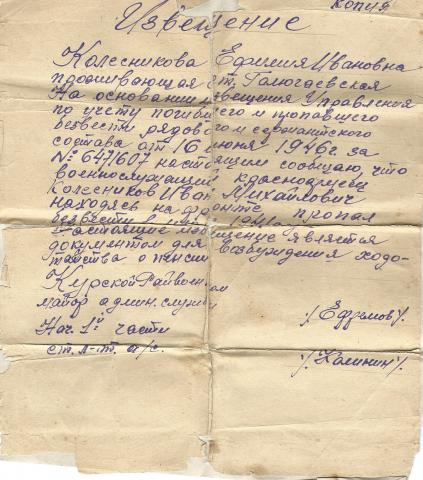 копия
Извещение
Колесникова Ефимия Ивановна
проживающая ст. Галюгаевская
На основании извещения Управления
по учету погибшего и пропавшего
безвести рядового и сержантского
состава от 16 июня 1946г. за
№ 641607 настоящим сообщаю, что
военнослужащий красноармеец
Колесников Иван Михайлович
находясь на фронте пропал
безвести в 1941
Настоящее извещение является
документом для возбуждения ходо-
тайства о пенсии
Курской Райвоенком
майор админ. службы
/Ефремов/.
Нач. 1й части
ст. л-т. а/с.
/Калинин/.